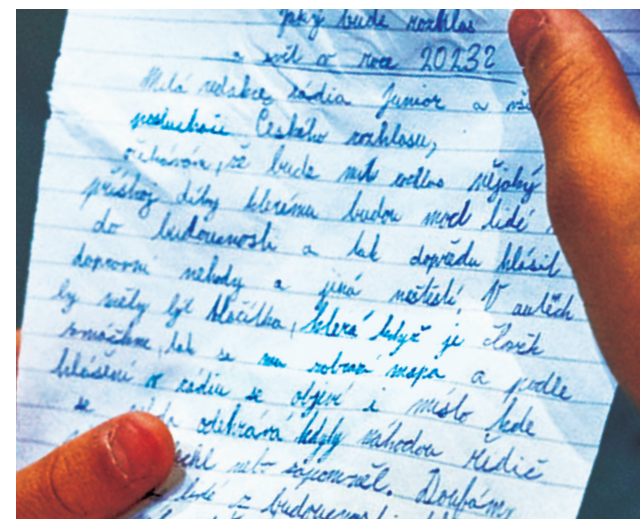 Jaký bude rozhlas
a svět v roce 2023?
Milá redakce rádia Junior a vši
posluchači Českého rozhlasu,
očekávám, že bude mít rozhlas nějaký
přístroj díky kterému budou moct lidé
do budoucnosti a tak dopředu hlásit
dopravní nehody a jiná neštěstí. V autech
by měly být tlačítka, která když je člověk
zmáčkne, tak se mu zobrazí mapa a podle
hlášení v rádiu se objeví i místo kde
se odehrává kdyby náhodou řidič
nebo zapomněl. Doufám,
lidé z budoucnosti